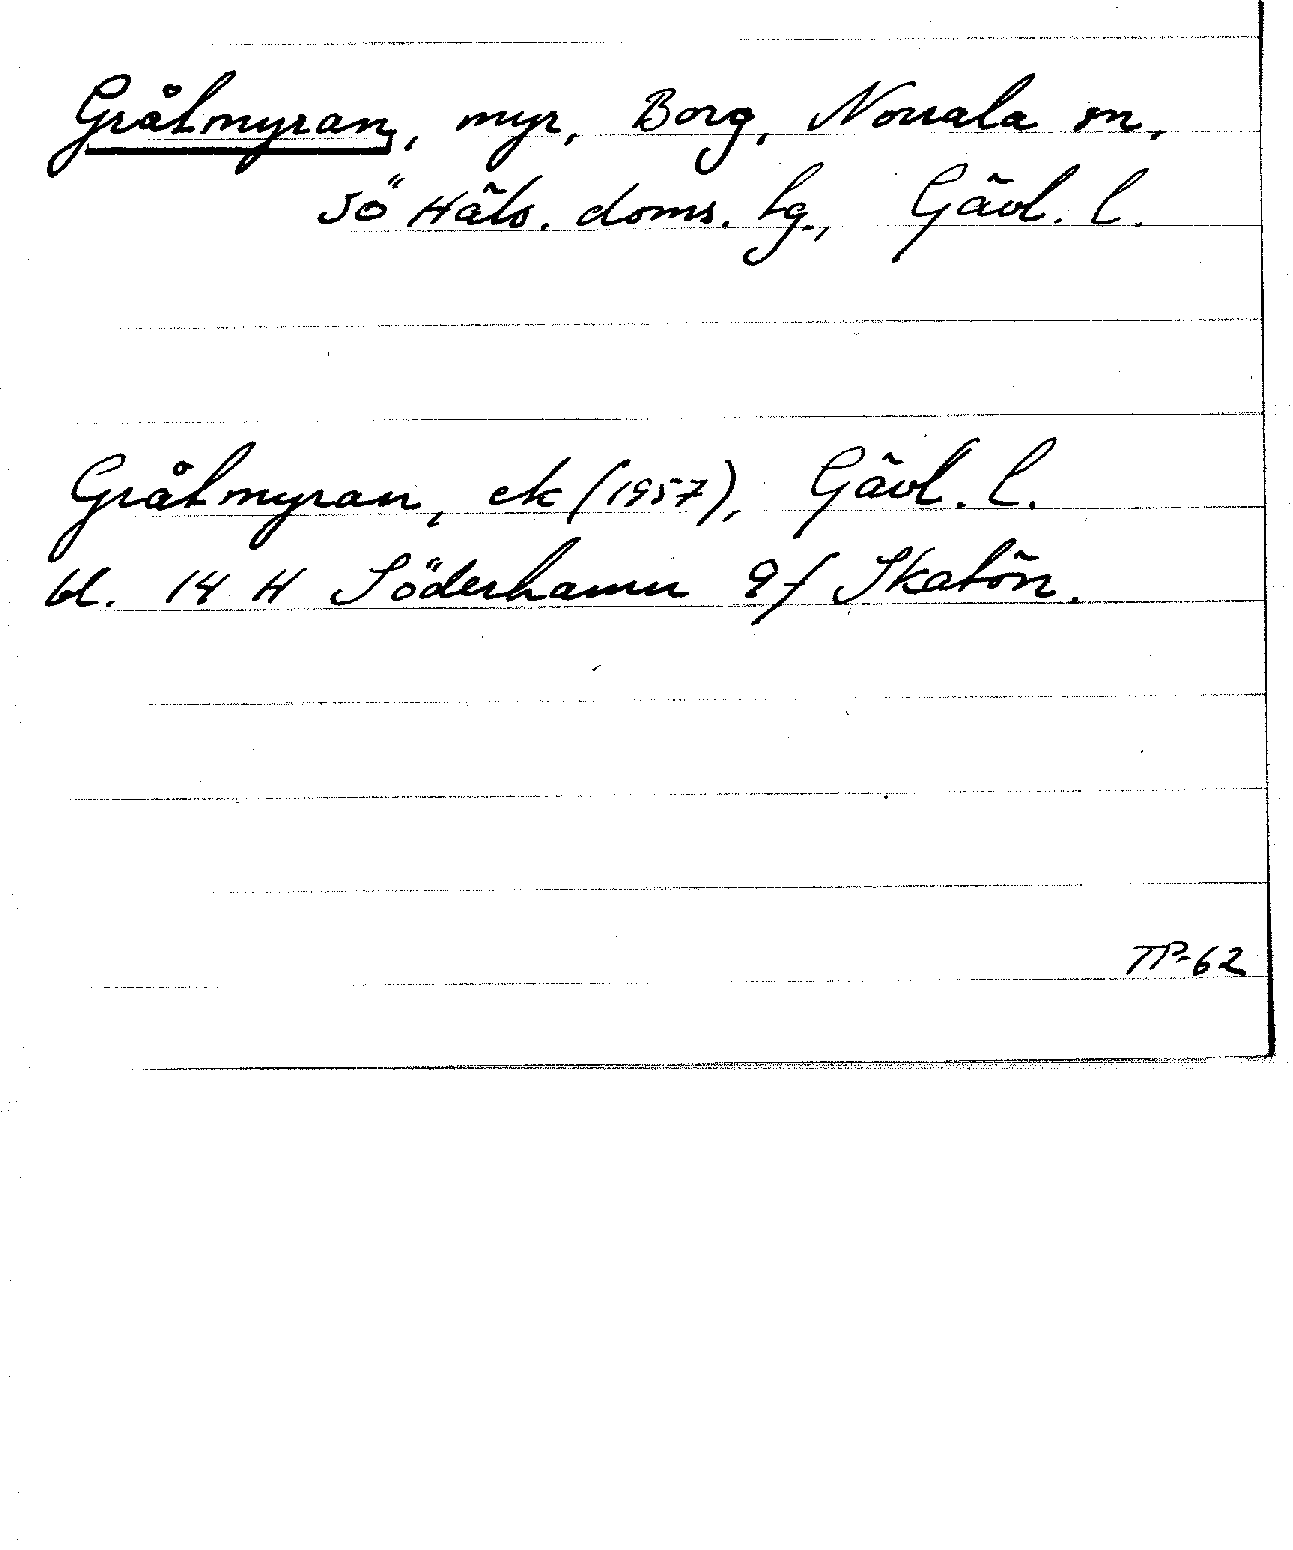 Gråtmyran, myr, Borg, Norrala sn,
Sö Häls. doms. tg., Gävl. l.
Gråtmyran, ek (1957), Gävl. l.
bl. 14 H Söderhamn 9f Skatön.
TP-62